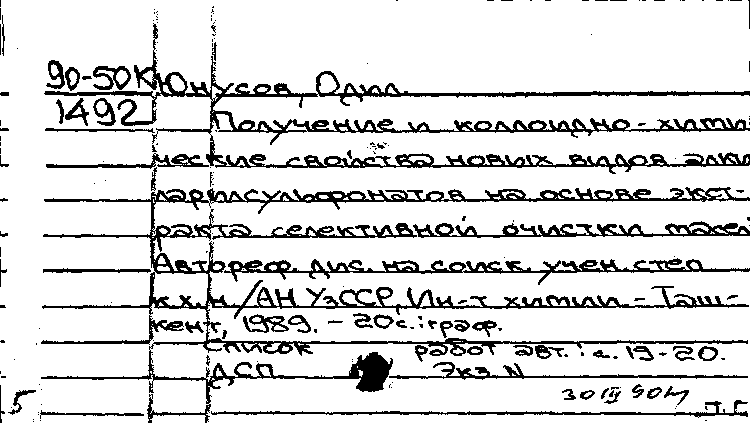 90-50К Юнусов, Одил.
1492
Получение и коллоидно-хими
ческие свойства новых видов алки
ларилсульфонатов на основе экст-
ракта селективной очистки масел
Автореф. дис. на соиск. учен. степ
к.х.н. /АН УзССР, Ин-т химии. - Таш-
кент, 1989. - 20с.: граф.
Список работ авт.: с. 19-20.
ДСП Экз N
5